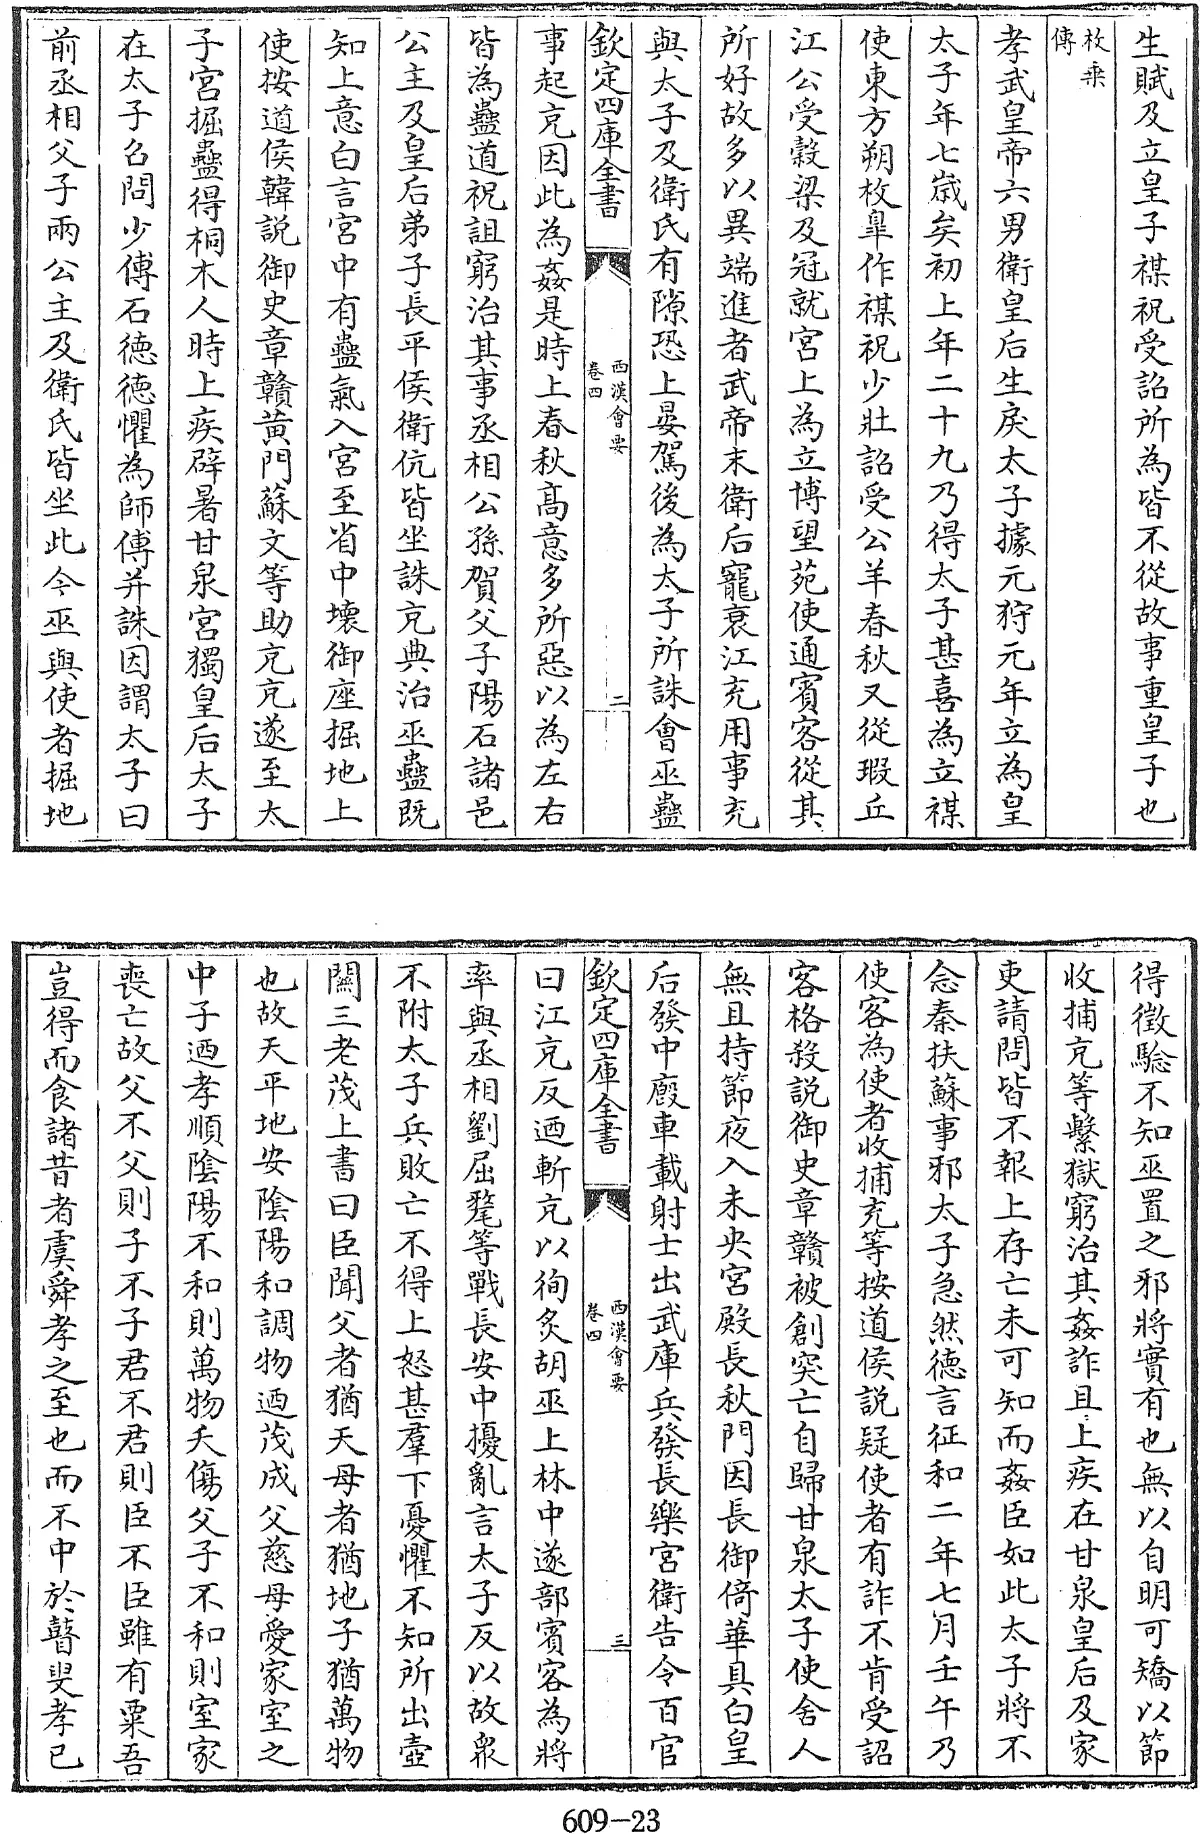 生賦及立皇子禖祝受詔所為皆不從故事重皇子也
枚乗
傳
孝武皇帝六男衛皇后生戾太子據元狩元年立為皇
太子年七歲矣初上年二十九乃得太子甚喜為立禖
使東方朔枚臯作禖祝少壯詔受公羊春秋又從瑕丘
江公受榖梁及冠就宮上為立博望苑使通賓客從其
所好故多以異端進者武帝末衛后寵衰江充用事充
與太子及衛氏有隙恐上晏駕後為太子所誅會巫蠱
欽定四庫全書
西漢會要
卷四
二
事起充因此為姦是時上春秋髙意多所惡以為左右
皆為蠱道祝詛窮治其事丞相公孫賀父子陽石諸邑
公主及皇后弟子長平侯衛伉皆坐誅充典治巫蠱既
知上意白言宮中有蠱氣入宮至省中壞御座掘地上
使按道侯韓説御史章贛黄門蘇文等助充充遂至太
子宮掘蠱得桐木人時上疾辟暑甘泉宮獨皇后太子
在太子召問少傅石徳徳懼為師傅并誅因謂太子曰
前丞相父子兩公主及衛氏皆坐此今巫與使者掘地
得徵驗不知巫置之邪將實有也無以自明可矯以節
收捕充等繫獄窮治其姦詐且上疾在甘泉皇后及家
吏請問皆不報上存亡未可知而姦臣如此太子將不
念秦扶蘇事邪太子急然徳言征和二年七月壬午乃
使客為使者收捕充等按道侯説疑使者有詐不肯受詔
客格殺説御史章贛被創突亡自歸甘泉太子使舍人
無且持節夜入未央宮殿長秋門因長御倚華具白皇
后發中廄車載射士出武庫兵發長樂宮衛告令百官
欽定四庫全書
西漢會要
卷四
三
曰江充反迺斬充以徇炙胡巫上林中遂部賓客為將
率與丞相劉屈氂等戰長安中擾亂言太子反以故衆
不附太子兵敗亡不得上怒甚羣下憂懼不知所出壺
關三老茂上書曰臣聞父者猶天母者猶地子猶萬物
也故天平地安陰陽和調物迺茂成父慈母愛家室之
中子迺孝順陰陽不和則萬物夭傷父子不和則室家
喪亡故父不父則子不子君不君則臣不臣雖有粟吾
豈得而食諸昔者虞舜孝之至也而不中於瞽叟孝已
609-23